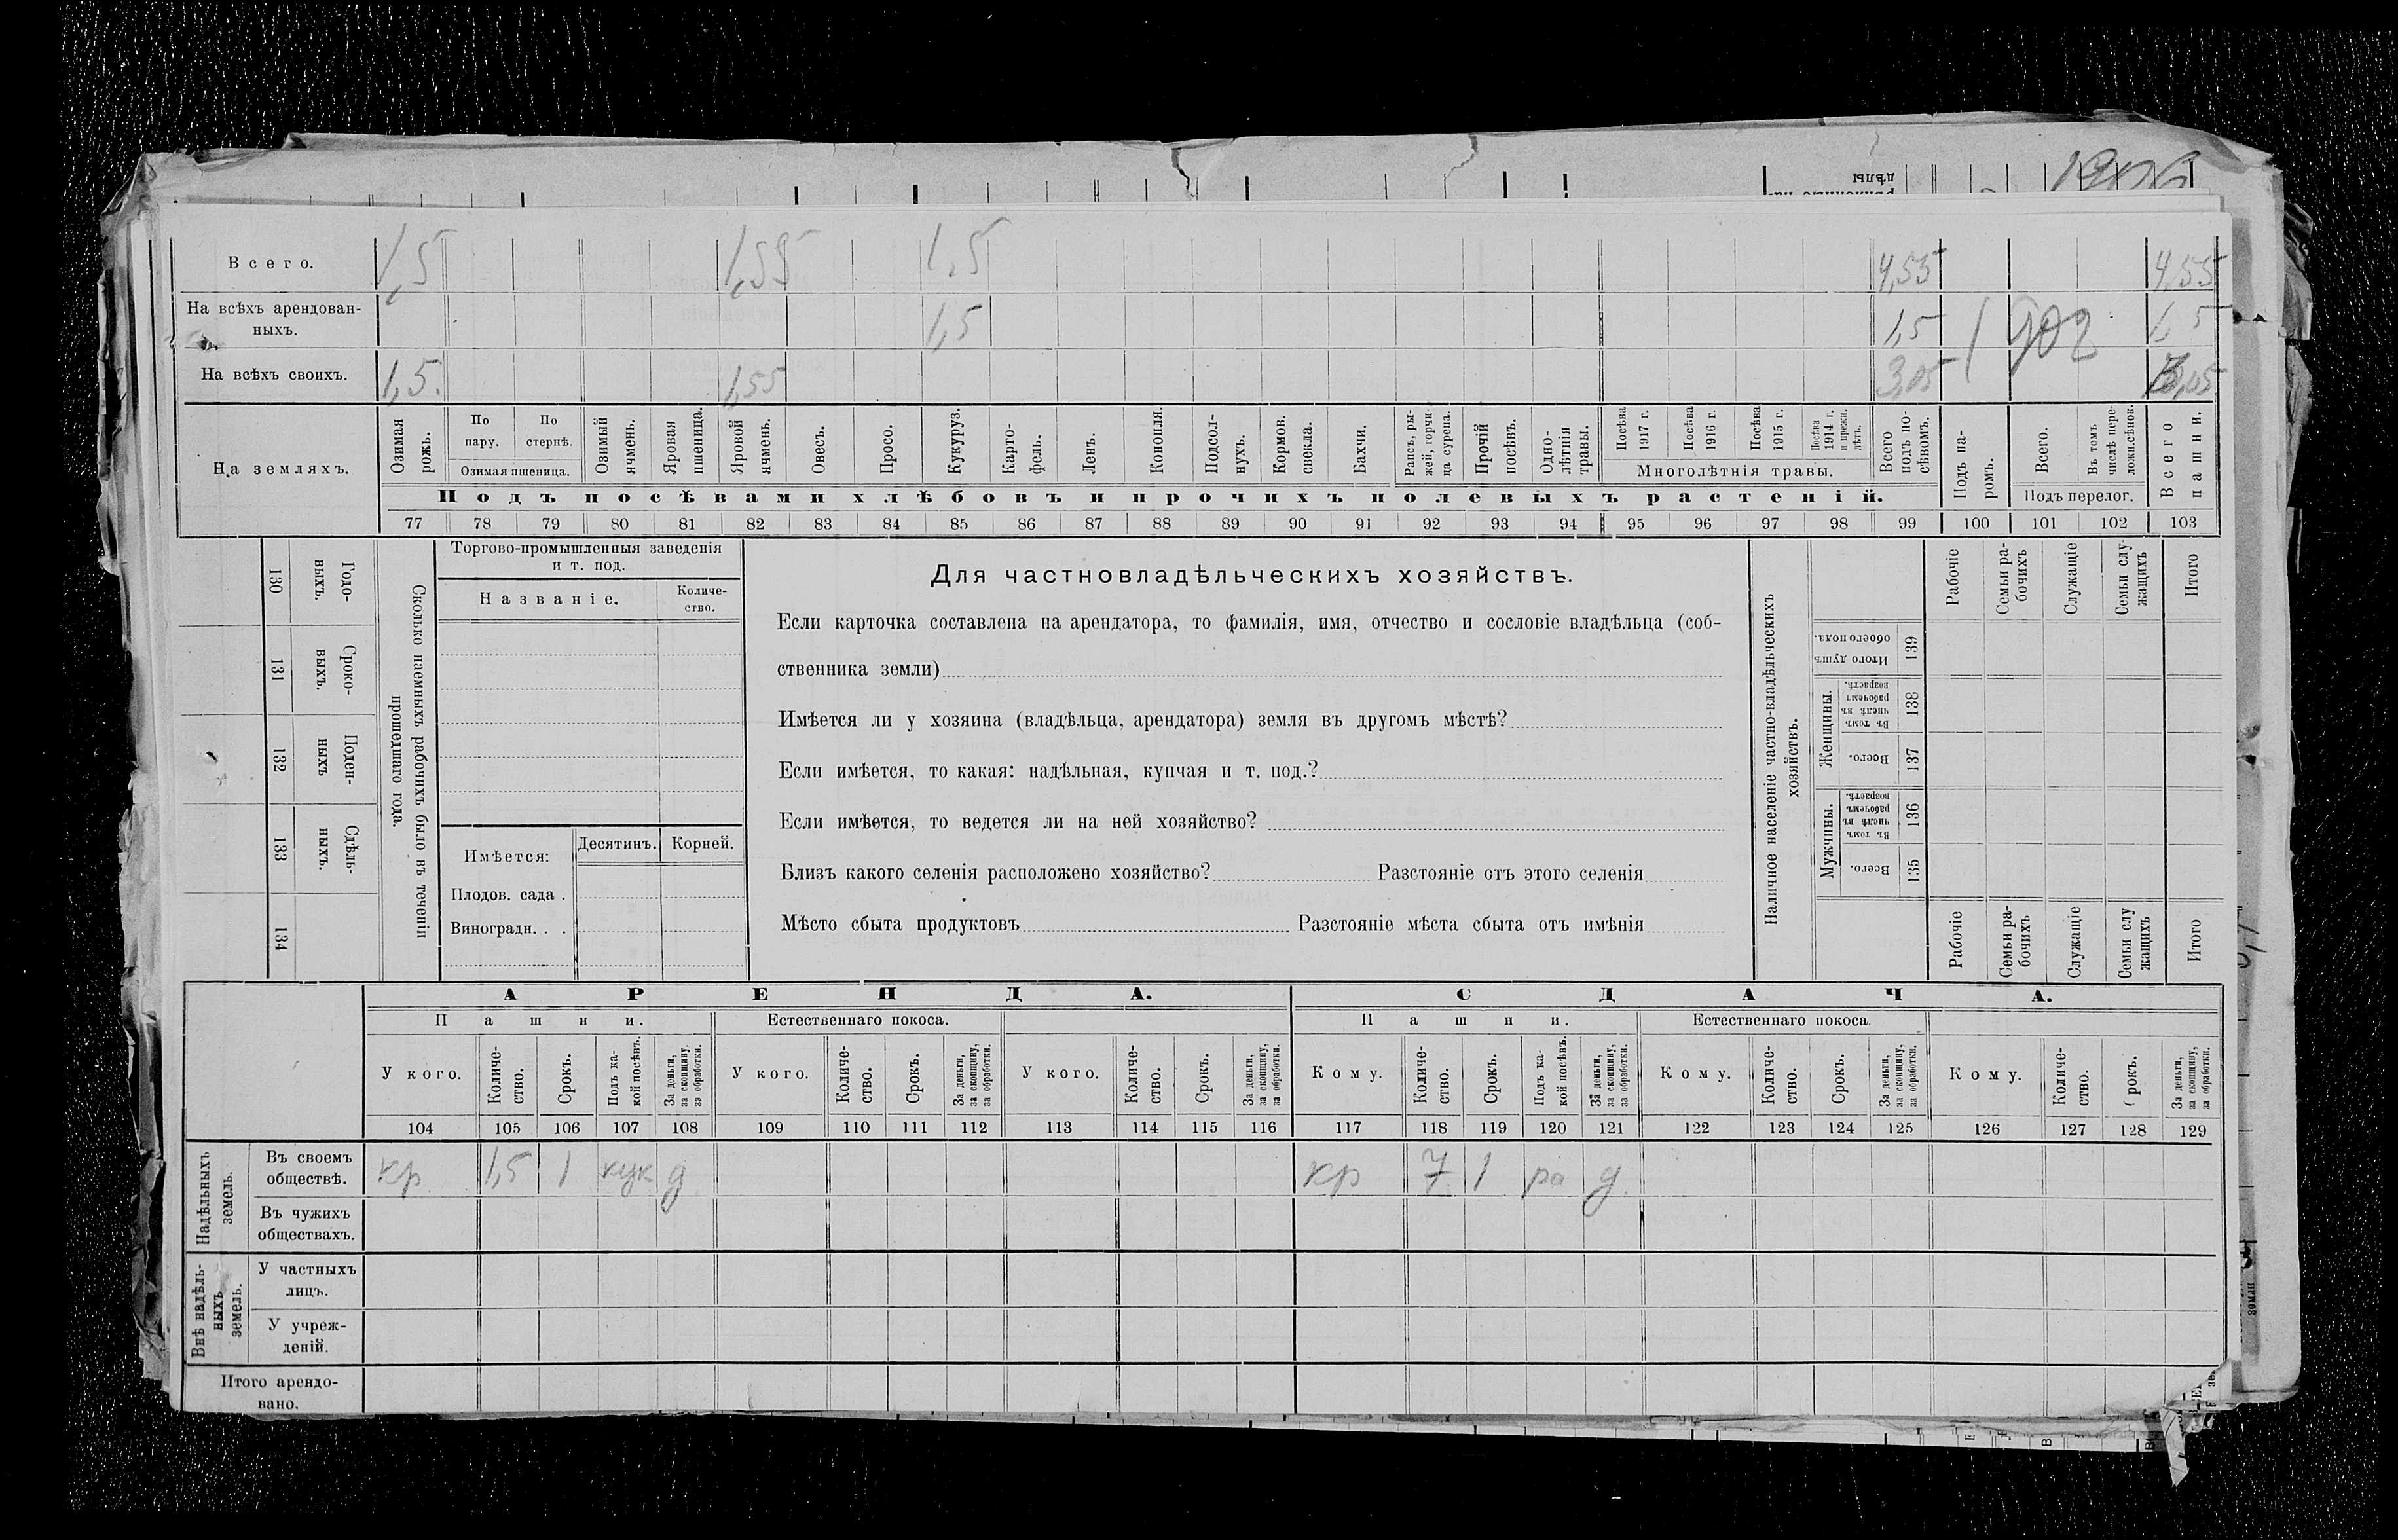 Всего. 1,5 1,55 1,5 4,55 4,55
На всѣхъ арендован-
ныхъ. 1,5 1,5 1,5
902
На всѣхъ своихъ. 1,5. 1,55 3,05 3,05
На земляхъ.
Озимая рожь.
По пару.
По стернѣ.
Озимая пшеница.
Озимый ячмень.
Яровая пшеница.
Яровой ячмень.
Овесъ.
Просо.
Кукуруз.
Карто-
фель.
Ленъ.
Конопля.
Подсол-
нухъ.
Кормов. свекла.
Бахчи.
Рапсъ, ры-
жей, горчи-
ца сурепа.
Прочій посѣвъ.
Одно-
лѣтнія травы.
Посѣва 1917 г.
Посѣва 1916 г.
Посѣва 1915 г.
Посѣва 1914 г. и прежн. лѣтъ.
Многолѣтнія травы.
Всего подъ по-
сѣвомъ.
Подъ па-
ромъ.
Всего.
Въ томъ числѣ пере-
ложн.сѣнок.
Подъ перелог.
Всего пашни.
Подъ посѣвами хлѣбовъ и прочихъ полевыхъ растеній.
77 78 79 80 81 82 83 84 85 86 87 88 89 90 91 92 93 94 95 96 97 98 99 100 101 102 103
130 Годо-
выхъ.
131 Сроко-
выхъ.
132 Поден-
ныхъ
133 Сдѣль-
ныхъ.
134
Сколько наемныхъ рабочихъ было въ теченіи
прошедшаго года.
Торгово-промышленныя заведенія
и т. под.
Названіе. Количе-
ство.
Имѣется: Десятинъ. Корней.
Плодов. сада .
Виноградн. . .
Для частновладѣльческихъ хозяйствъ.
Если карточка составлена на арендатора, то фамилія, имя, отчество и сословіе владѣльца (соб-
ственника земли)
Имѣется ли у хозяина (владѣльца, арендатора) земля въ другомъ мѣстѣ?
Если имѣется, то какая: надѣльная, купчая и т. под.?
Если имѣется, то ведется ли на ней хозяйство?
Близъ какого селенія расположено хозяйство? Разстояніе отъ этого селенія
Мѣсто сбыта продуктовъ Разстояніе мѣста сбыта отъ имѣнія
Наличное населеніе частно-владѣльческихъ
хозяйствъ.
Рабочіе
Семьи ра-
бочихъ
Служащіе
Семьи слу-
жащихъ
Итого
Итого душъ обоего пола. 139
Женщины.
Въ томъ числѣ въ рабочемъ возрастѣ. 138
Всего. 137
Мужчины.
Въ томъ числѣ въ рабочемъ возрастѣ. 136
Всего. 135
Рабочіе
Семьи ра-
бочихъ
Служащіе
Семьи слу
жащихъ
Итого
АРЕНДА. СДАЧА.
Пашни. Естественнаго покоса. Пашни. Естественнаго покоса.
У кого.
Количе-
ство.
Срокъ.
Подъ ка-
кой посѣвъ.
За деньги,
за скопщину,
за обработки.
У кого.
Количе-
ство.
Срокъ.
За деньги,
за скопщину,
за обработки.
У кого.
Количе-
ство.
Срокъ.
За деньги,
за скопщину,
за обработки.
Кому.
Количе-
ство.
Срокъ.
Подъ ка-
кой посѣвъ.
За деньги,
за скопщину,
за обработки.
Кому.
Количе-
ство.
Срокъ.
За деньги,
за скопщину,
за обработки.
Кому.
Количе-
ство.
(рокъ.
За деньги,
за скопщину,
за обработки.
104 105 106 107 108 109 110 111 112 113 114 115 116 117 118 119 120 121 122 123 124 125 126 127 128 129
Надѣльныхъ
земель.
Въ своемъ
обществѣ. кр 1,5 1 кук д кр 7 1 ро д
Въ чужихъ
обществахъ.
Внѣ надѣль-
ныхъ
земель.
У частныхъ
лицъ.
У учреж-
деній.
Итого арендо-
вано.